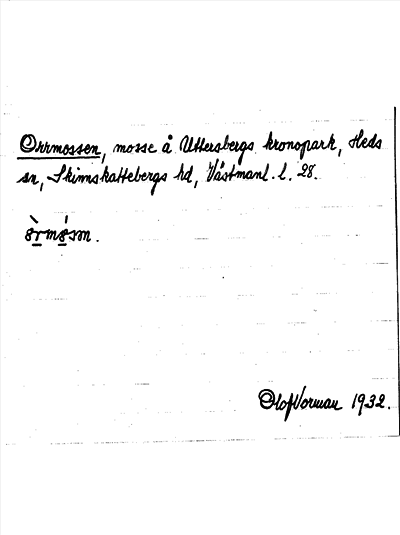 Orrmossen, mosse å Uttersbergs kronopark, Heds
sn, Skinnskattebergs hd, Västmanl. l. 28.
òrmósən.
Olof Vorman 1932.